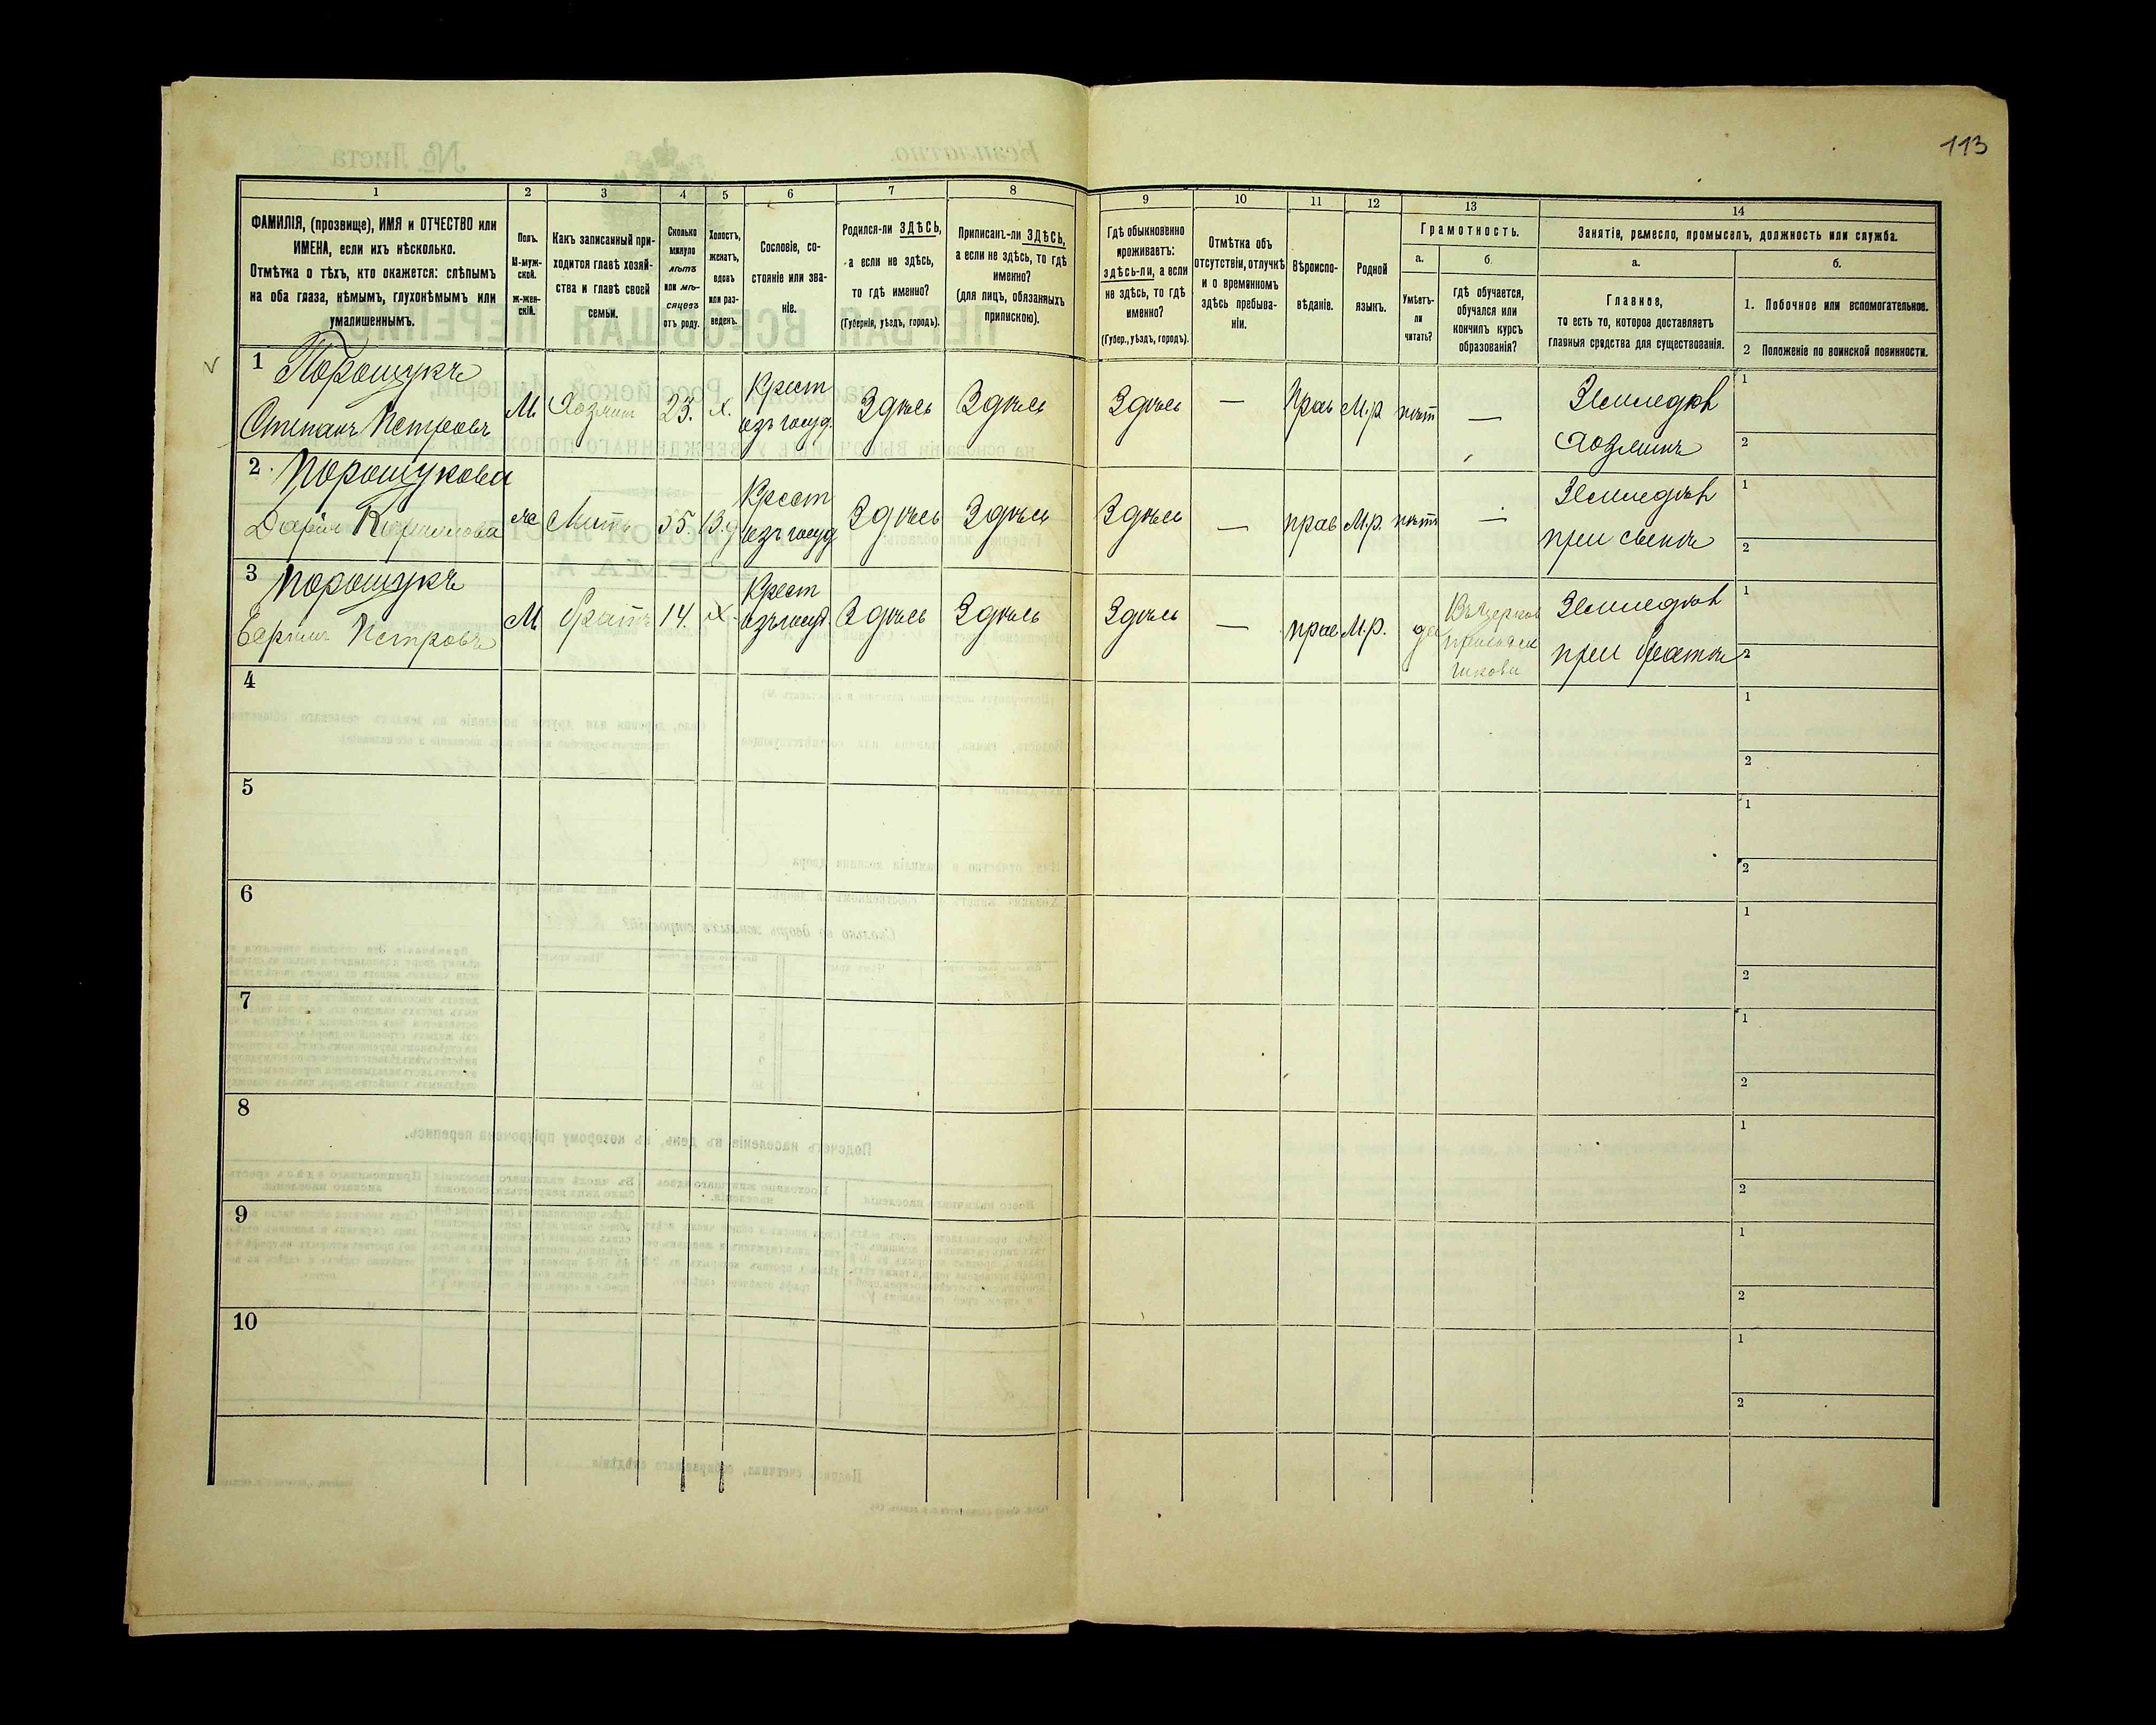 113
1
2
3
4
5
6
7
8
9
10
11
12
13
14
ФАМИЛІЯ, (прозвище), ИМЯ и ОТЧЕСТВО или
ИМЕНА, если ихъ нѣсколько.
Отмѣтка о тѣхъ, кто окажется: слѣпымъ
на оба глаза, нѣмымъ, глухонѣмымъ или
умалишеннымъ.
Полъ.
М-муж-
ской.
ж-жен-
скій.
Какъ записанный при-
ходится главѣ хозяй-
ства и главѣ своей
семьи.
Сколько
минуло
лѣтъ
или мѣ-
сяцевъ
отъ роду.
Холостъ,
женатъ,
вдовъ
или раз-
веденъ.
Сословіе, со-
стояніе или зва-
ніе.
Родился-ли ЗДѢСЬ,
а если не здѣсь,
то гдѣ именно?
(Губернія, уѣздъ, городъ).
Приписанъ-ли ЗДѢСЬ,
а если не здѣсь, то гдѣ
именно?
(для лицъ, обязанныхъ
припискою).
Гдѣ обыкновенно
проживаетъ:
здѣсь-ли, а если
не здѣсь, то гдѣ
именно?
(Губер., уѣздъ, городъ).
Отмѣтка объ
отсутствіи, отлучкѣ
и о временномъ
здѣсь пребыва-
ніи.
Вѣроиспо-
вѣданіе.
Родной
языкъ.
Грамотность.
а.
Умѣетъ-
ли
читать?
б.
гдѣ обучается,
обучался или
кончилъ курсъ
образованія?
Занятіе, ремесло, промыселъ, должность или служба.
а.
Главное,
то есть то, которое доставляетъ
главныя средства для существованія.
б.
1. Побочное или вспомогательное.
2 Положеніе по воинской повинности.
1 Порощукъ
Степанъ Петровъ
М
Хозяин
23.
х.
Крест
изъ госуд.
Здѣсь
Здѣсь
Здѣсь
—
Прав
М.р
нѣт
—
Земледѣл
Хозяинъ
1
2
2. Порощукова
Дарія
ж
Мать
55
Крест
изъ госуд
Здѣсь
Здѣсь
Здѣсь
—
прав
М.р.
нѣтъ
—
Земледѣл
при сынѣ
1
2
3 Порощукъ
Петровъ
М
братъ
14.
х.
Крест
изъ госуд.
Здѣсь
Здѣсь
Здѣсь
—
прав
М.р.
да
Въ церков
приходск
Земледѣл
при братѣ
1
2
4
1
2
5
1
2
6
1
2
7
1
2
8
1
2
9
1
2
10
1
2